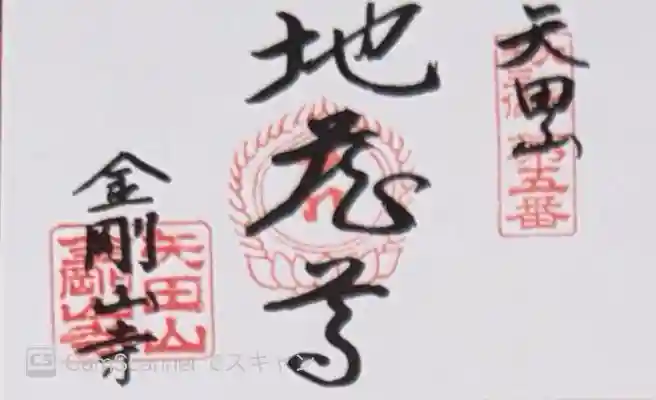 矢田山
第五番
地蔵尊
金剛山寺
矢田山
金剛山寺
CS CamScanner でスキャン